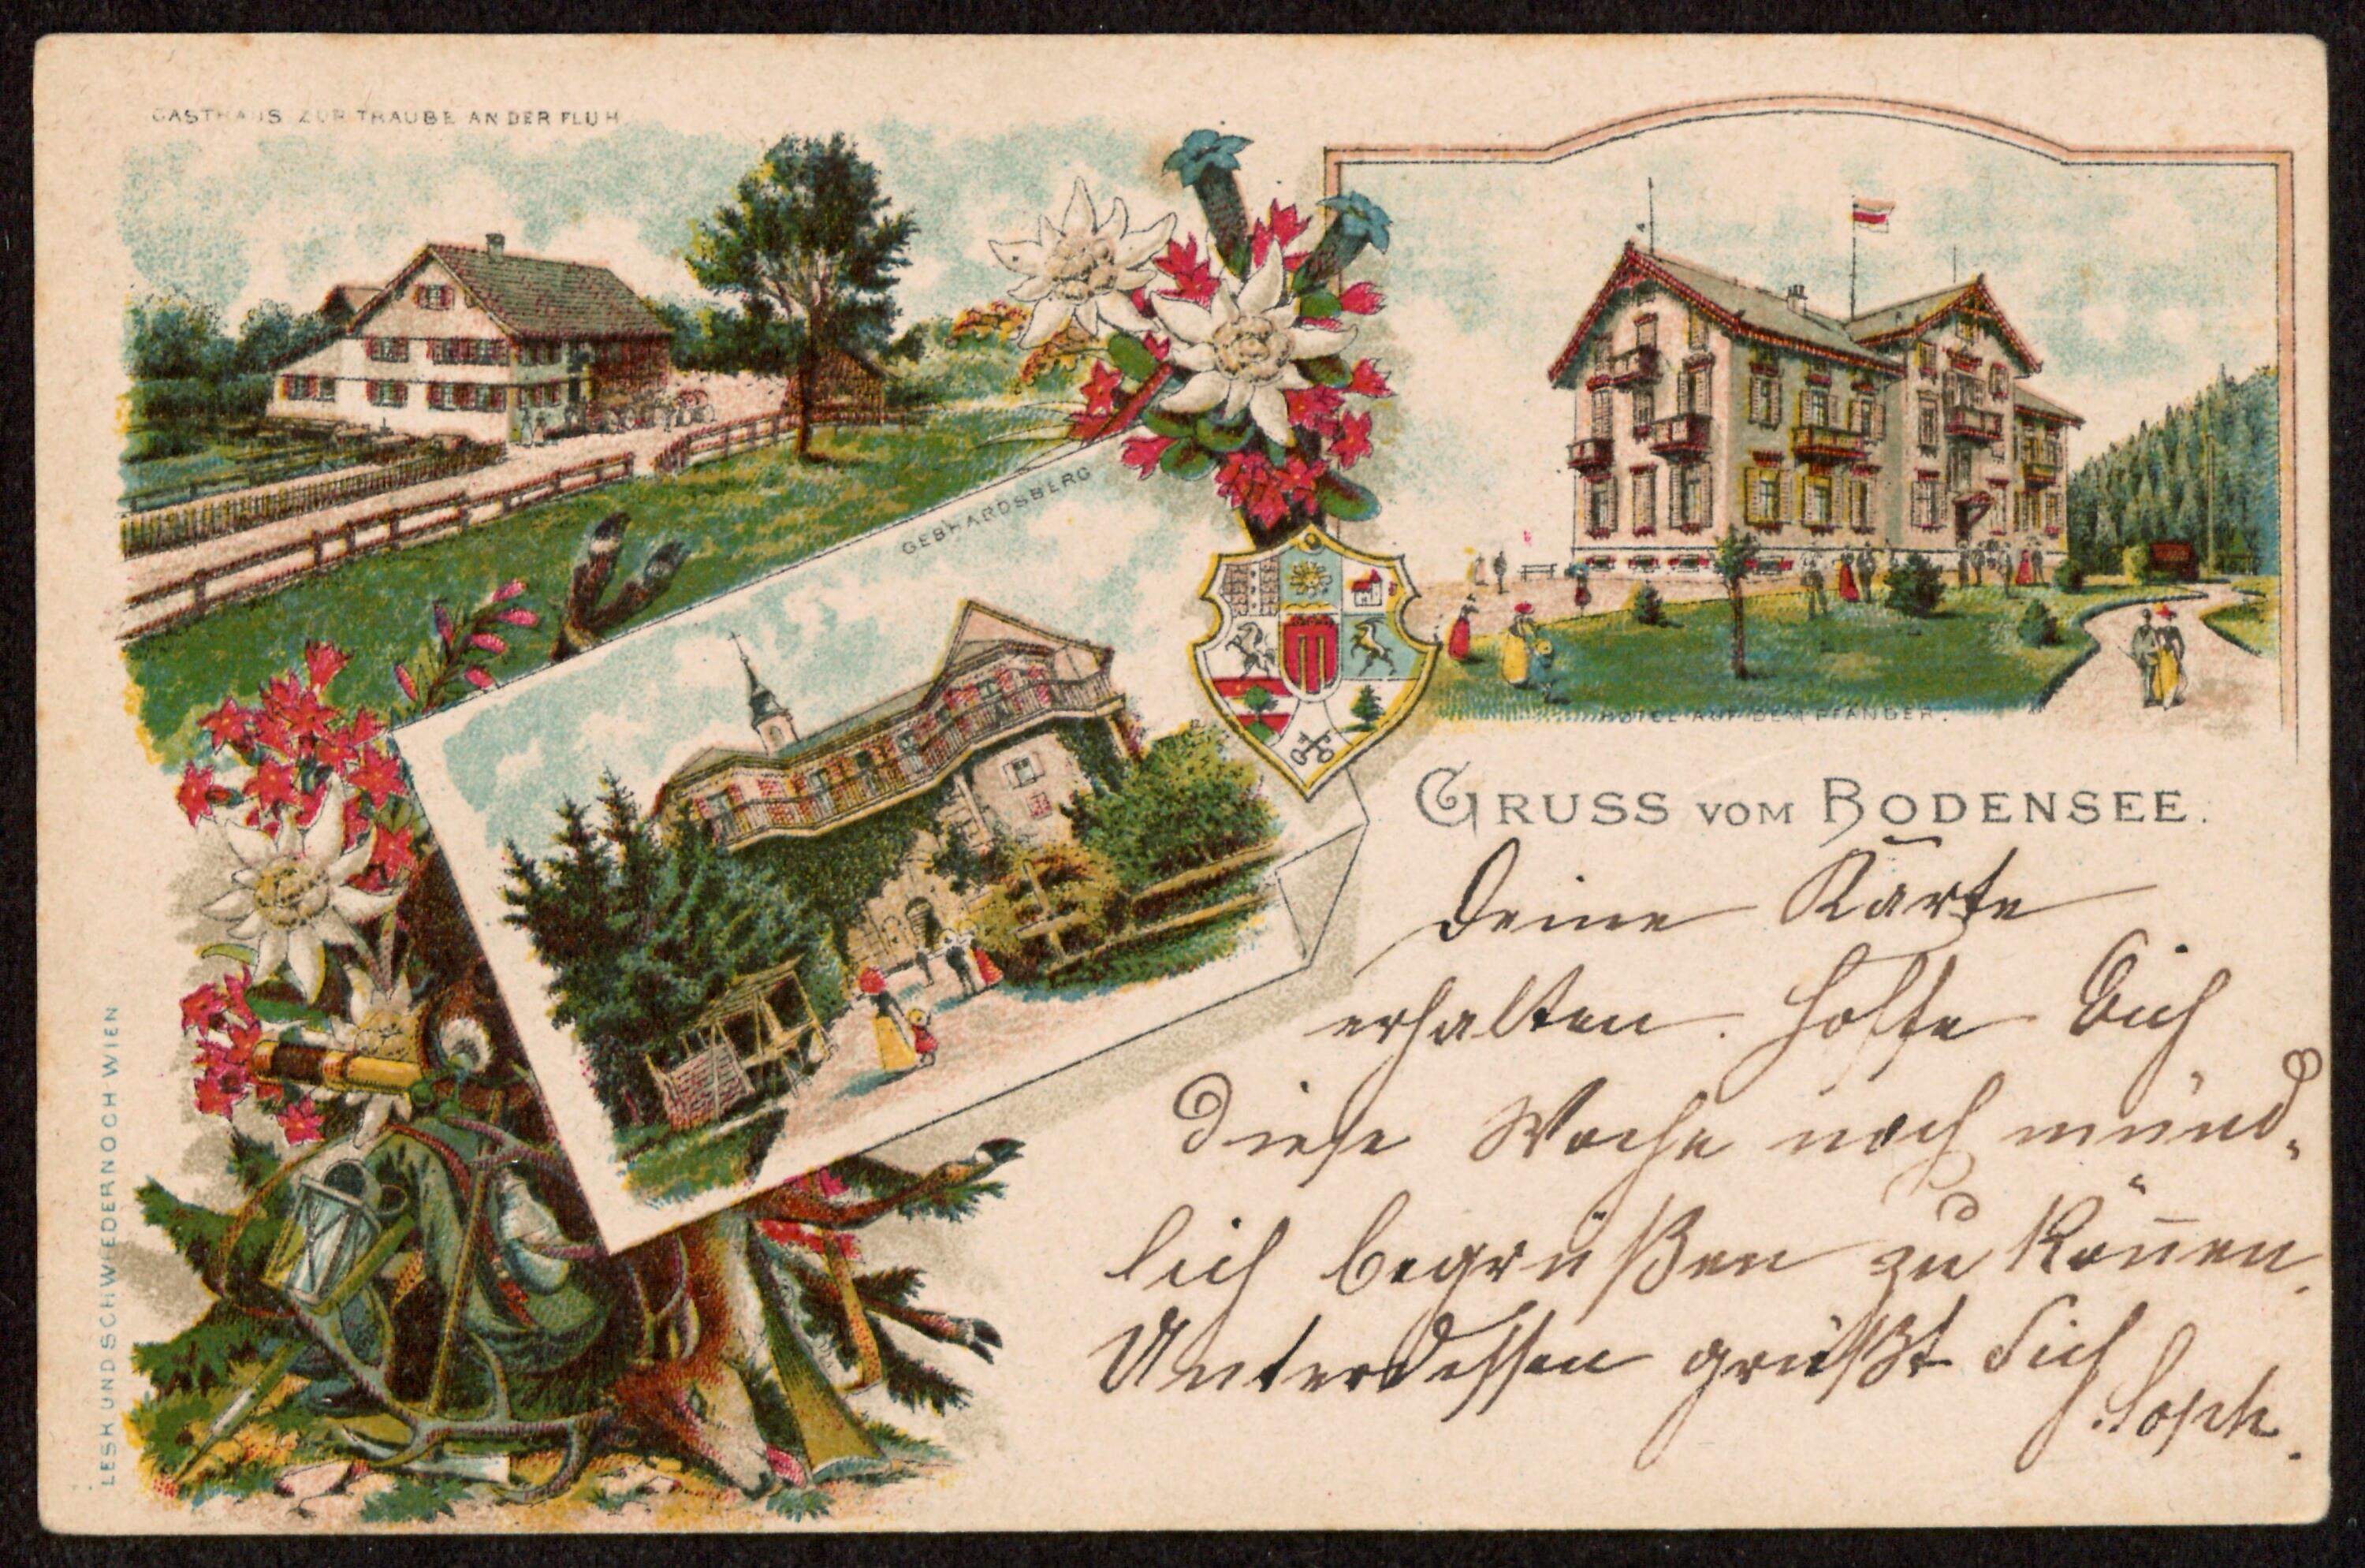 GASTHAUS ZUR TRAUBE AN DER FLUH
GEBHARDSBERG
HOTEL AUF DEM PFÄNDER.
GRUSS VOM BODENSEE.
Deine Karte
erhalten. Hoffe Dich
diese Woche noch münd-
lich begrüßen zu können.
Unterdessen grüßt Dich
Soph.
LESK UND SCHWIEDERNOCH WIEN